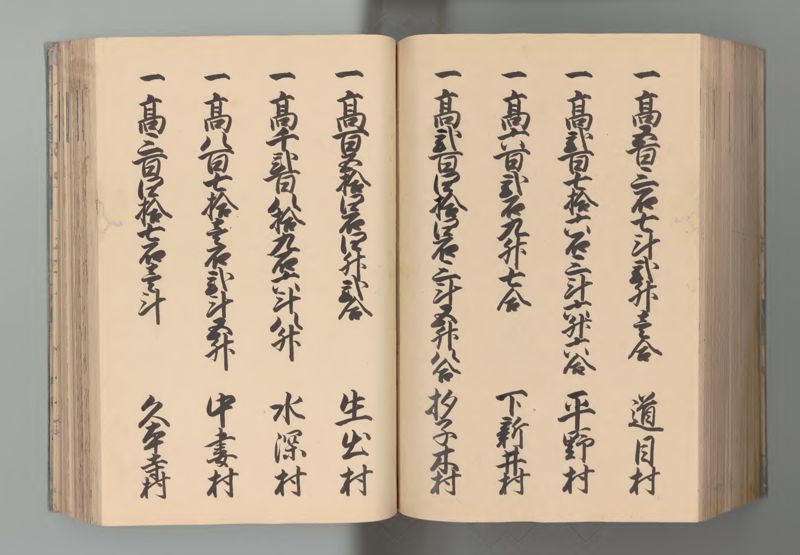 一高五百三石七斗弐升壱合 道目村
一高弐百七拾六石三斗六升六合 平野村
一高六百弐石九升七合 下新井村
一高弐百四拾四石三斗五升八合 杓子木村
一高百五拾四石四升弐合 生出村
一高千弐百八拾九石六斗八升 水深村
一高八百七拾壱石弐斗五升 中妻村
一高三百四拾七石壱斗 久本寺村